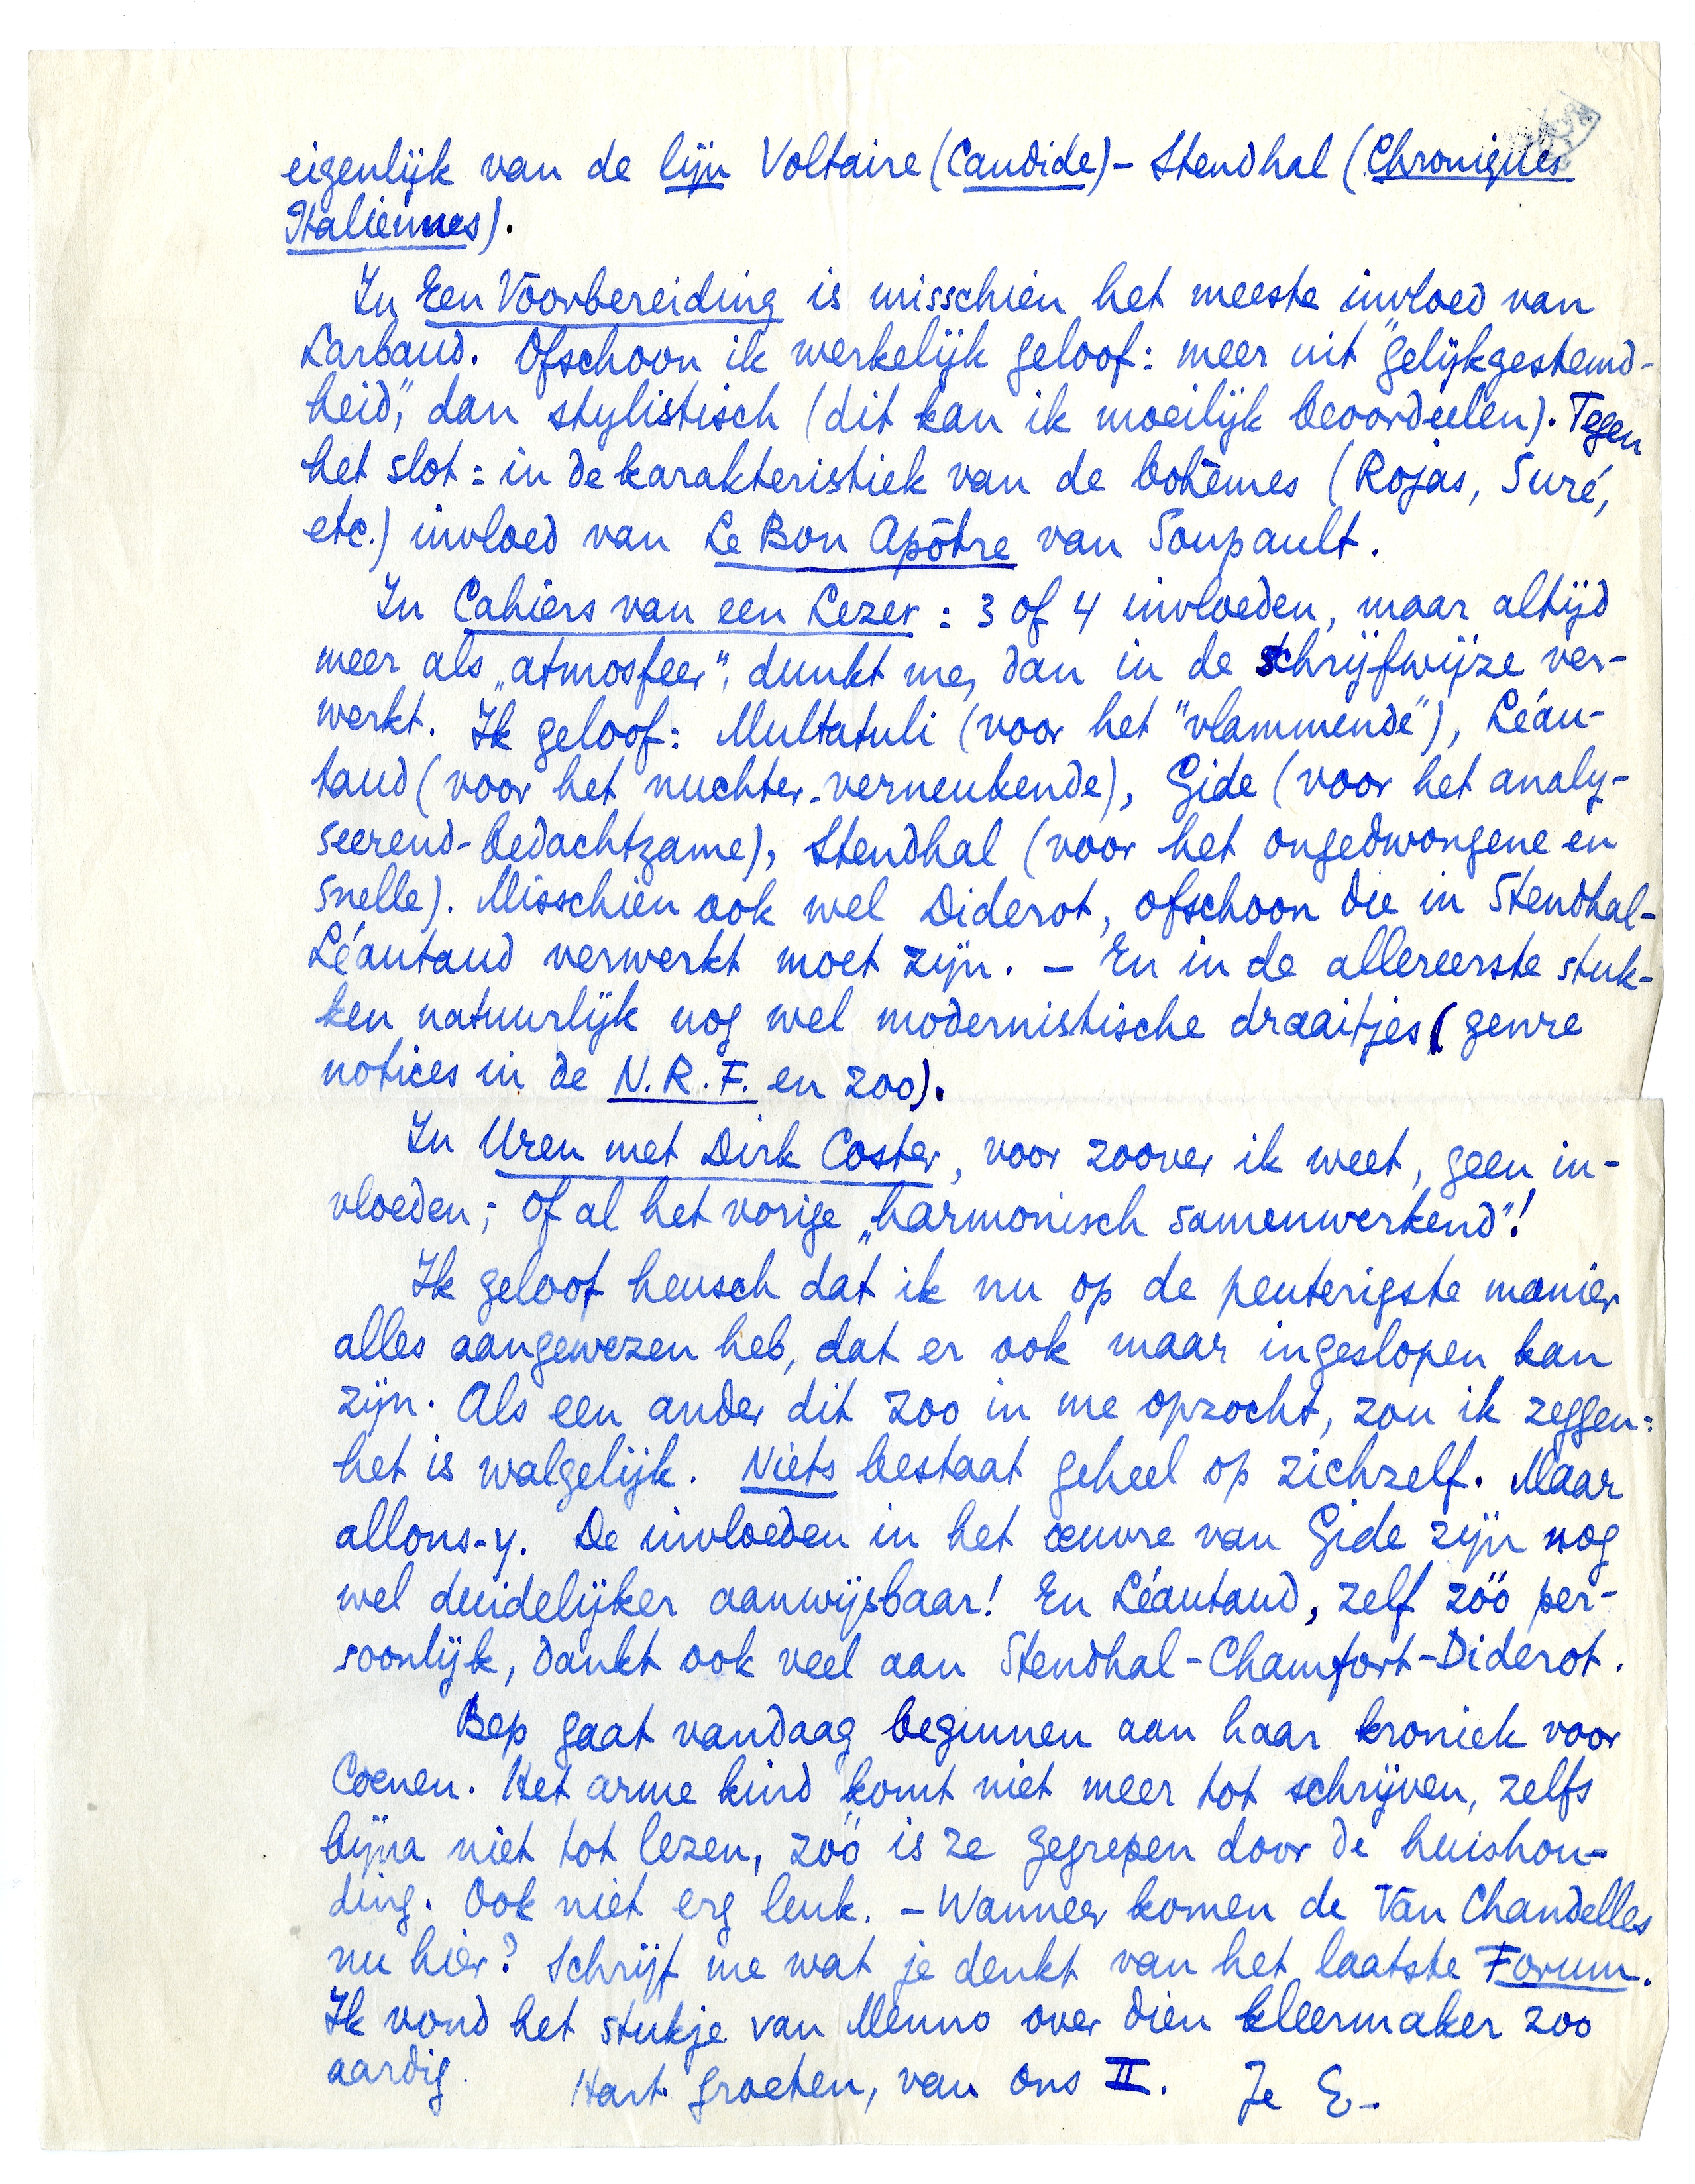 eigenlijk van de lijn Voltaire (Candide) – Stendhal (Chroniques
Italiennes).
In Een Voorbereiding is misschien het meeste invloed van
Larbaud. Ofschoon ik werkelijk geloof: meer uit "gelijkgestemd-
heid", dan stylistisch (dit kan ik moeilijk beoordeelen). Tegen
het slot: in de karakteristiek van de bohèmes (Rojas, Suré,
etc.) invloed van Le Bon Apôtre van Soupault.
In Cahiers van een Lezer: 3 of 4 invloeden, maar altijd
meer als „atmosfeer", dunkt me, dan in de schrijfwijze ver-
werkt. Ik geloof: Multatuli (voor het "vlammende"), Léau-
taud (voor het nuchter-verneukende), Gide (voor het analy-
seerend-bedachtzame), Stendhal (voor het ongedwongene en
snelle). Misschien ook wel Diderot, ofschoon die in Stendhal-
Léautaud verwerkt moet zijn. – En in de allereerste stuk-
ken natuurlijk nog wel modernistische draaitjes (genre
notices in de N.R.F. en zoo).
In Uren met Dirk Coster, voor zoover ik weet, geen in-
vloeden; of al het vorige „harmonisch samenwerkend"!
Ik geloof heusch dat ik nu op de peuterigste manier
alles aangewezen heb, dat er ook maar ingeslopen kan
zijn. Als een ander dit zoo in me opzocht, zou ik zeggen:
het is walgelijk. Niets bestaat geheel op zichzelf. Maar
allons-y. De invloeden in het œuvre van Gide zijn nog
wel duidelijker aanwijsbaar! En Léautaud, zelf zóó per-
soonlijk, dankt ook veel aan Stendhal-Chamfort-Diderot.
Bep gaat vandaag beginnen aan haar kroniek voor
Coenen. Het arme kind komt niet meer tot schrijven, zelfs
bijna niet tot lezen, zóó is ze gegrepen door de huishou-
ding. Ook niet erg leuk. – Wanneer komen de Van Chandelles
nu hier? Schrijf me wat je denkt van het laatste Forum.
Ik vond het stukje van Menno over dien kleermaker zoo
aardig. Hart. groeten, van ons II. Je E.